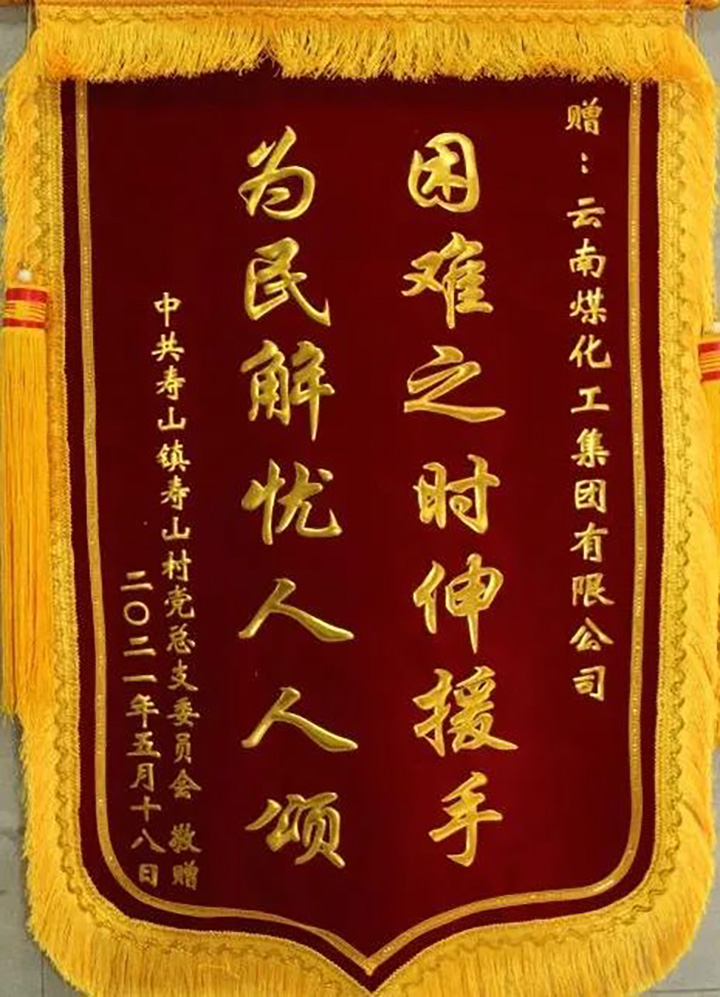 赠：云南煤化工集团有限公司
困难之时伸援手
为民解忧人人颂
中共寿山镇寿山村党总支委员会 敬赠
二〇二一年五月十八日